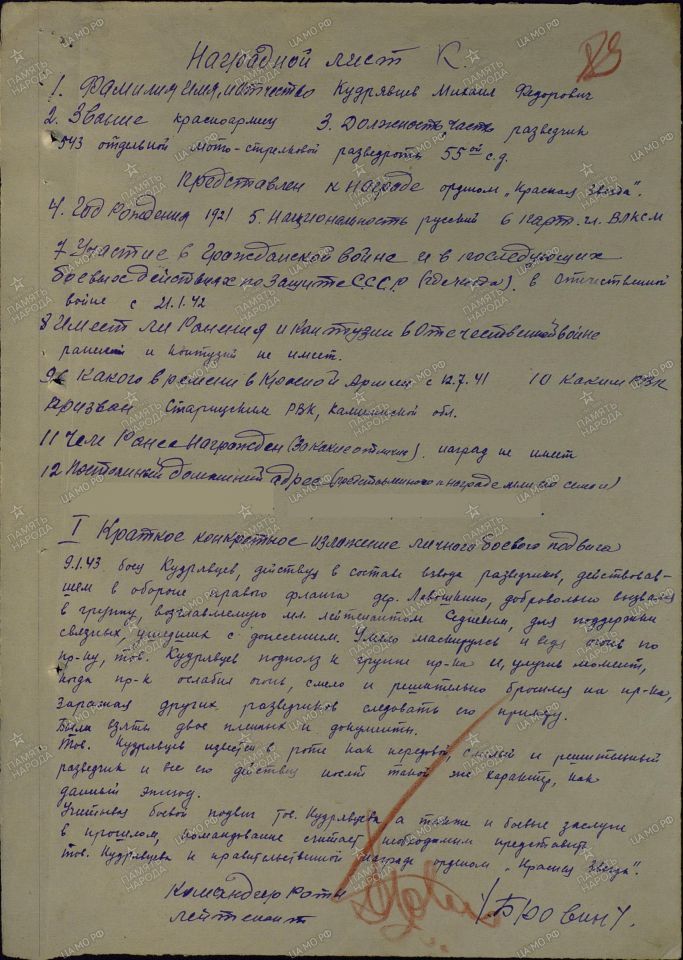 Наградной лист К.
1. Фамилия имя, отчество Кудрявцев Михаил Федорович
2. Звание красноармеец 3. Должность, часть разведчик
543 отдельной мото-стрелковой разведроты 55ой с.д.
Представлен к награде орденом „Красная Звезда“.
4. Год Рождения 1921 5. Национальность русский 6 парт. чл. ВЛКСМ
7 Участие в Гражданской войне и в последующих
боевых действиях по защите СССР (где когда). в Отечественной
войне с 21.1.42
8 Имеет ли Ранения и Контузии в Отечественной войне
ранений и контузий не имеет.
9 С Какого времени в Красной Армии с 12.7.41 10 Каким РВК
Призван Старицким РВК, Калининской обл.
11 Чем Ранее Награжден (за какие отличия). наград не имеет
12 Постоянный домашний адрес (представленного к награде или его семьи)
I Краткое конкретное изложение личного боевого подвига
9.1.43 боец Кудрявцев, действуя в составе взвода разведчиков, действовав-
шем в обороне правого фланга дер. Левошкино, добровольно вызвался
в группу, возглавляемую мл. лейтенантом, для поддержки
связных, ушедших с донесением. Умело маскируясь и ведя огонь по
пр-ку, тов. Кудрявцев подполз к группе пр-ка и, улучив момент,
когда пр-к ослабил огонь, смело и решительно бросился на пр-ка,
заражая других разведчиков следовать его примеру.
Были взяты двое пленных и документы.
Тов. Кудрявцев известен в роте как передовой, смелый и решительный
разведчик и все его действия носят такой же характер, как
данный эпизод.
Учитывая боевой подвиг тов. Кудрявцева а также и боевые заслуги
в прошлом, командование считает необходимым представить
тов. Кудрявцева к правительственной награде орденом „Красная Звезда“.
Командир Роты
Лейтенант /Бровин/.
ПАМЯТЬ НАРОДА
ЦА МО РФ